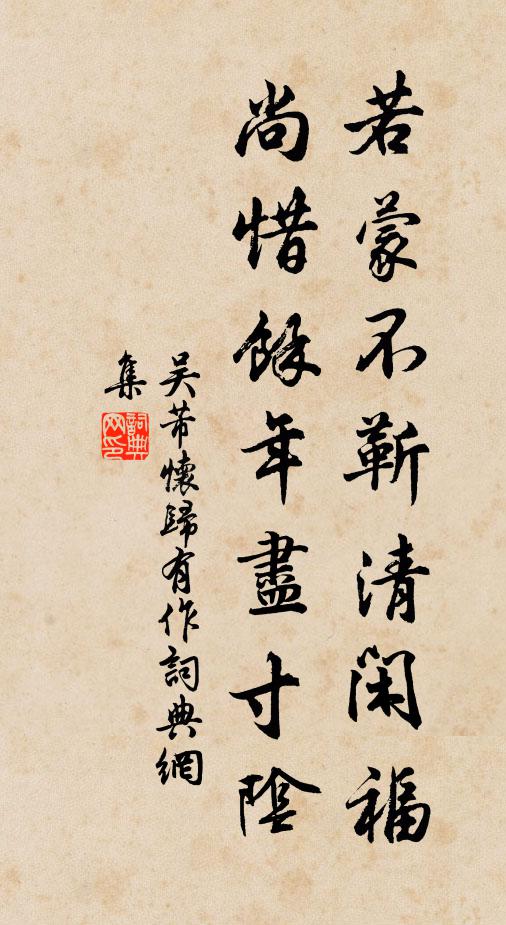 若蒙不靳清閑福
尚惜餘年盡寸陰
吴芾懷歸有作詞典網
集
詞典
网印